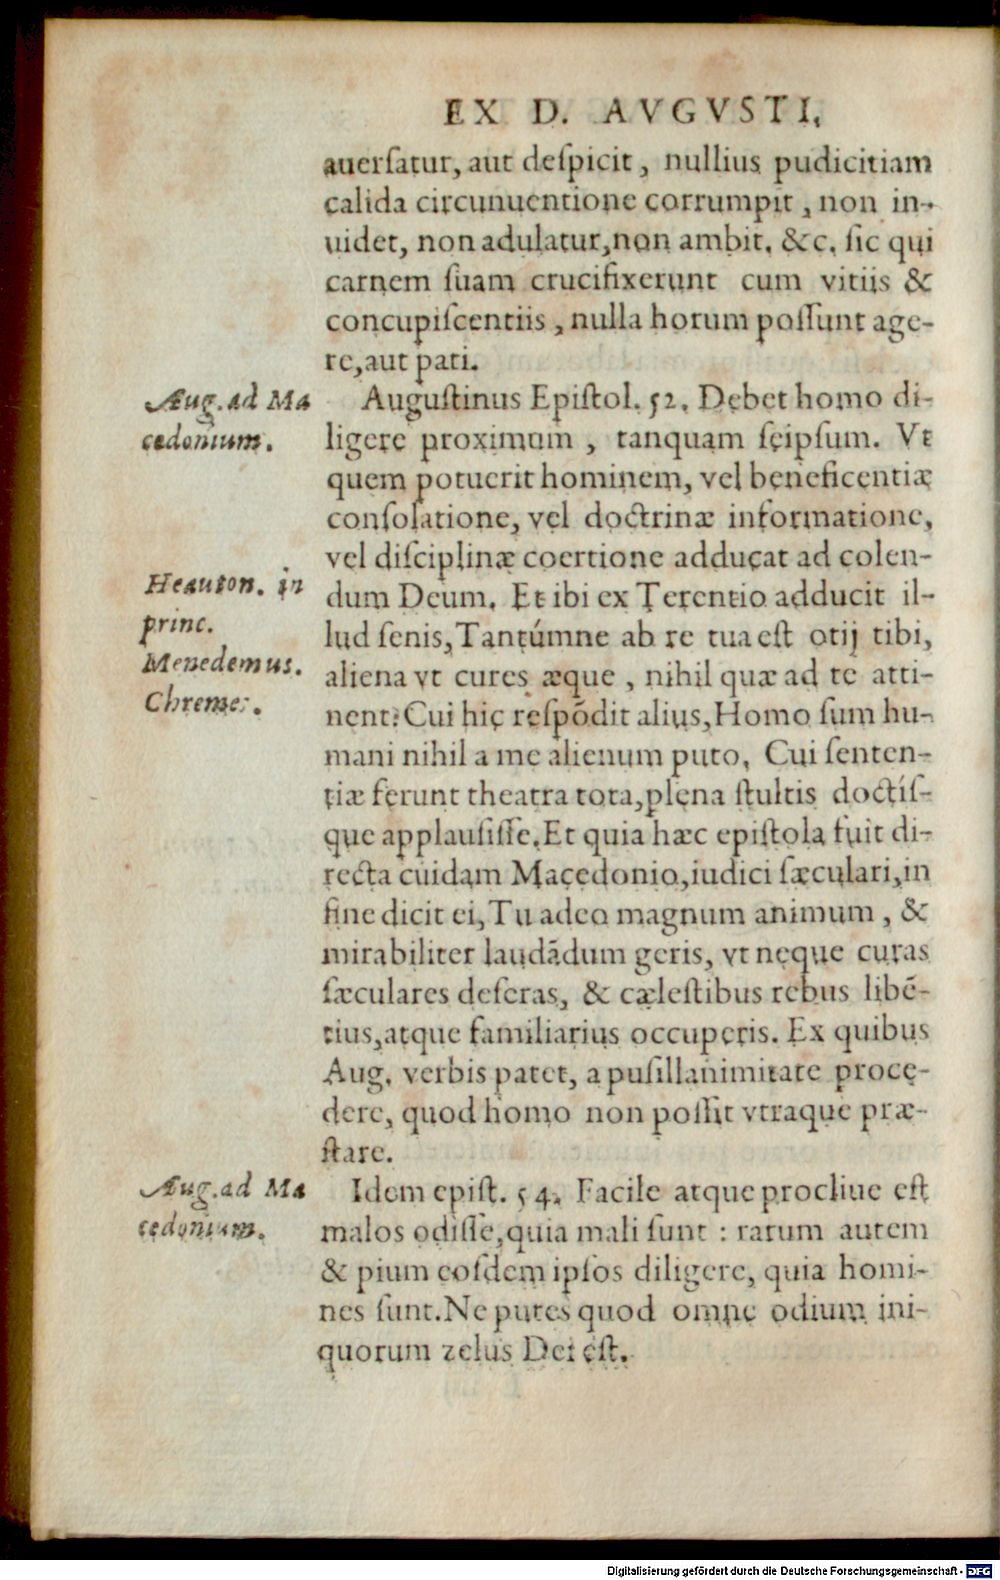 EX D. AVGVSTI.
auerſatur, aut deſpicit, nullius pudicitiam
calida circunuentione corrumpit, non in-
uidet, non adulatur, non ambit. &c. ſic qui
carnem ſuam crucifixerunt cum vitiis &
concupiſcentiis, nulla horum poſſunt age-
re, aut pati.
Aug. ad Ma
cedonium.
Auguſtinus Epiſtol. 52. Debet homo di-
ligere proximum, tanquam ſeipſum. Vt
quem potuerit hominem, vel beneficentiæ
conſolatione, vel doctrinæ informatione,
vel diſciplinæ coertione adducat ad colen-
Heauton. in
princ.
Menedemus.
Chremes.
dum Deum. Et ibi ex Terentio adducit il-
lud ſenis, Tantúmne ab re tua eſt otij tibi,
aliena vt cures æque, nihil quæ ad te atti-
nent: Cui hic reſpõdit alius, Homo ſum hu-
mani nihil a me alienum puto. Cui ſenten-
tiæ ferunt theatra tota, plena ſtultis doctíſ-
que applauſiſſe. Et quia hæc epiſtola fuit di-
recta cuidam Macedonio, iudici ſæculari, in
fine dicit ei, Tu adeo magnum animum, &
mirabiliter laudãdum geris, vt neque curas
ſæculares deſeras, & cæleſtibus rebus libẽ-
tius, atque familiarius occuperis. Ex quibus
Aug. verbis patet, a puſillanimitate proce-
dere, quod homo non poſſit vtraque præ-
ſtare.
Aug. ad Ma
cedonium.
Idem epiſt. 54. Facile atque procliue eſt
malos odiſſe, quia mali ſunt: rarum autem
& pium eoſdem ipſos diligere, quia homi-
nes ſunt. Ne putes quod omne odium ini-
quorum zelus Dei eſt.
Digitalisierung gefördert durch die Deutsche Forschungsgemeinschaft - DFG